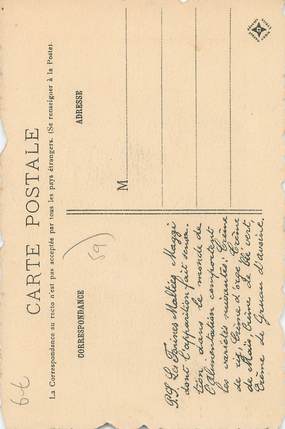 CARTE POSTALE
La Correspondance au recto n'est pas acceptée par tous les pays étrangers. (Se renseigner à la Poste)
CORRESPONDANCE
ADRESSE
M
59
P.S. Les Farines Maltées Maggi
dont l'apparition fait sensa-
tion dans le monde de
l'Alimentation comportent
les variétés suivantes: Crème
de riz, Crème d'orge, Crème
de Maïs, Crème de blé vert,
Crème de Gruau d'avoine.
6€